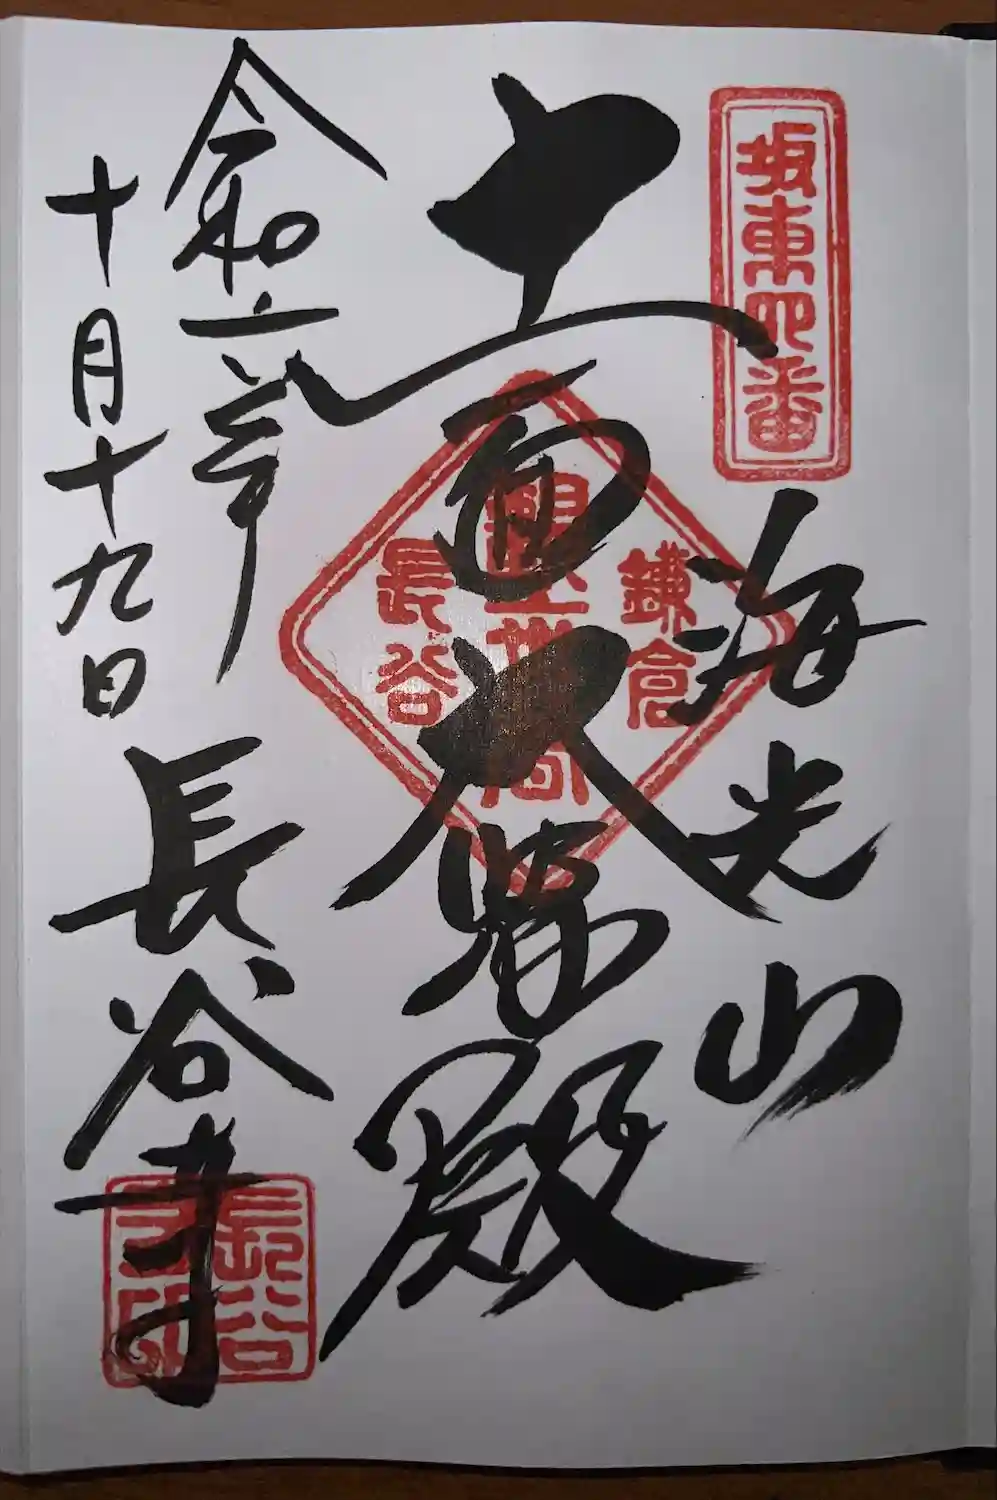 坂東四番
海光山
十一面大悲殿
鎌倉
観世音
長谷
令和六年
十月十九日
長谷寺
長谷
寺印